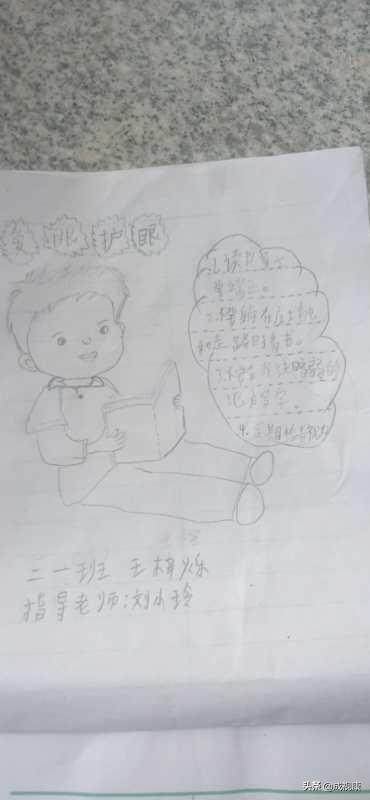 爱眼护眼
1.读书写字
要端正。
2.不躺在床上
和走路时看书。
3.不在光线暗弱的
地方看字。
4.定期检查视力
二一班 王梓烁
指导老师:刘小玲
头条@成视康